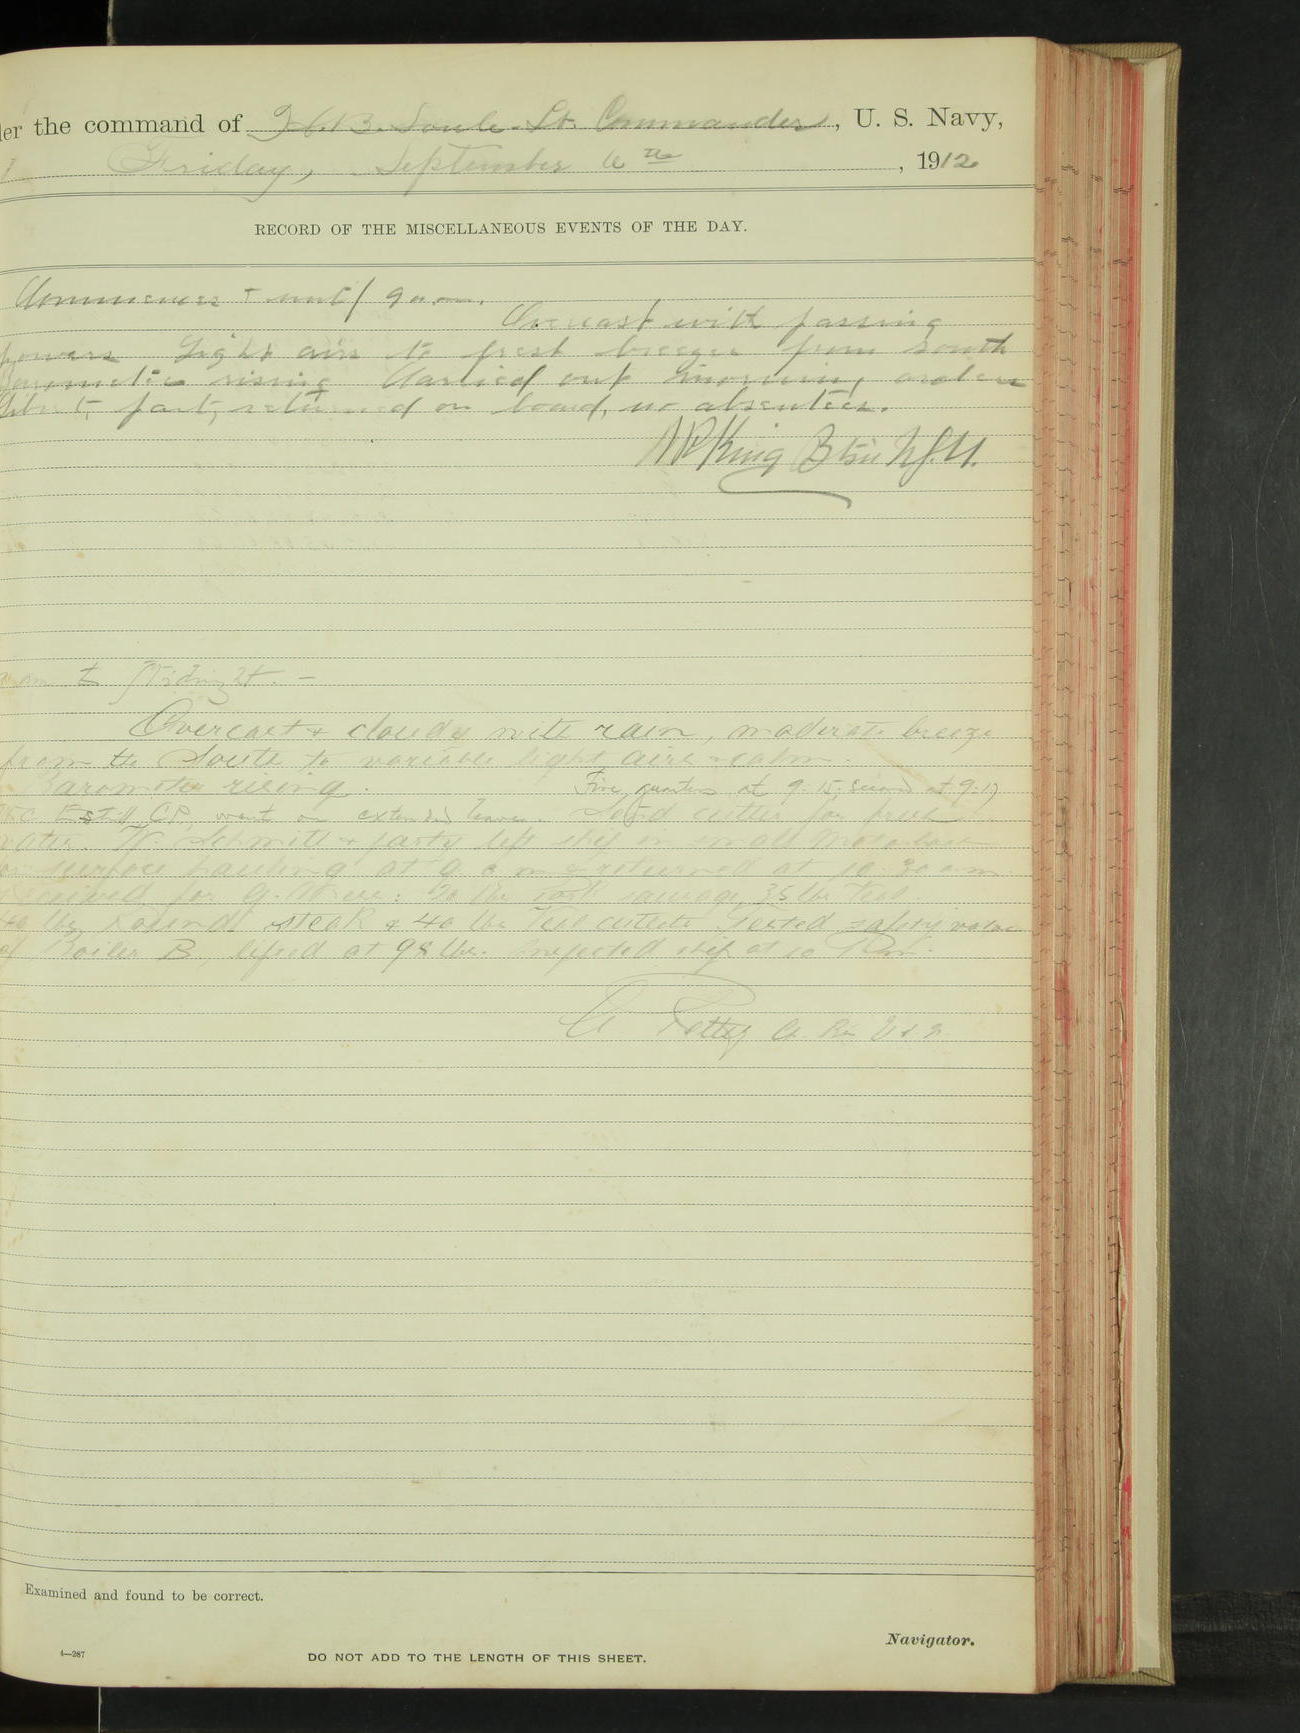 der the command of H. B. Soule. Lt. Commander, U. S. Navy,
Friday, September 6th, 1912
RECORD OF THE MISCELLANEOUS EVENTS OF THE DAY.
Commences + until 9 a.m.
Overcast with passing
howers Light airs to fresh breezes from South
Barometer rising Carried out morning orders
Liberty party returned on board, no absentees.
King Btsn U.S.N.
to Midnight. -
Overcast & cloudy with rain, moderate breeze
from the South to variable light airs & calm.
Barometer rising. Fire quarters at 9.15, secured at 9.17
Estill, CP, went on extended leave. Send cutter for fresh
water. Schmitt & party left ship in small
hauling at 9 a m & returned at 10.30 a.m.
received for G. Mess: 20 lbs sausage, 35 lbs Veal
40 lbs round steak & 40 lbs Veal cutlets Tested safety valve
of Boiler B, lifted at 98 lbs. Inspected ship at 10 P.m.
U S N
Examined and found to be correct.
Navigator.
4—287
DO NOT ADD TO THE LENGTH OF THIS SHEET.